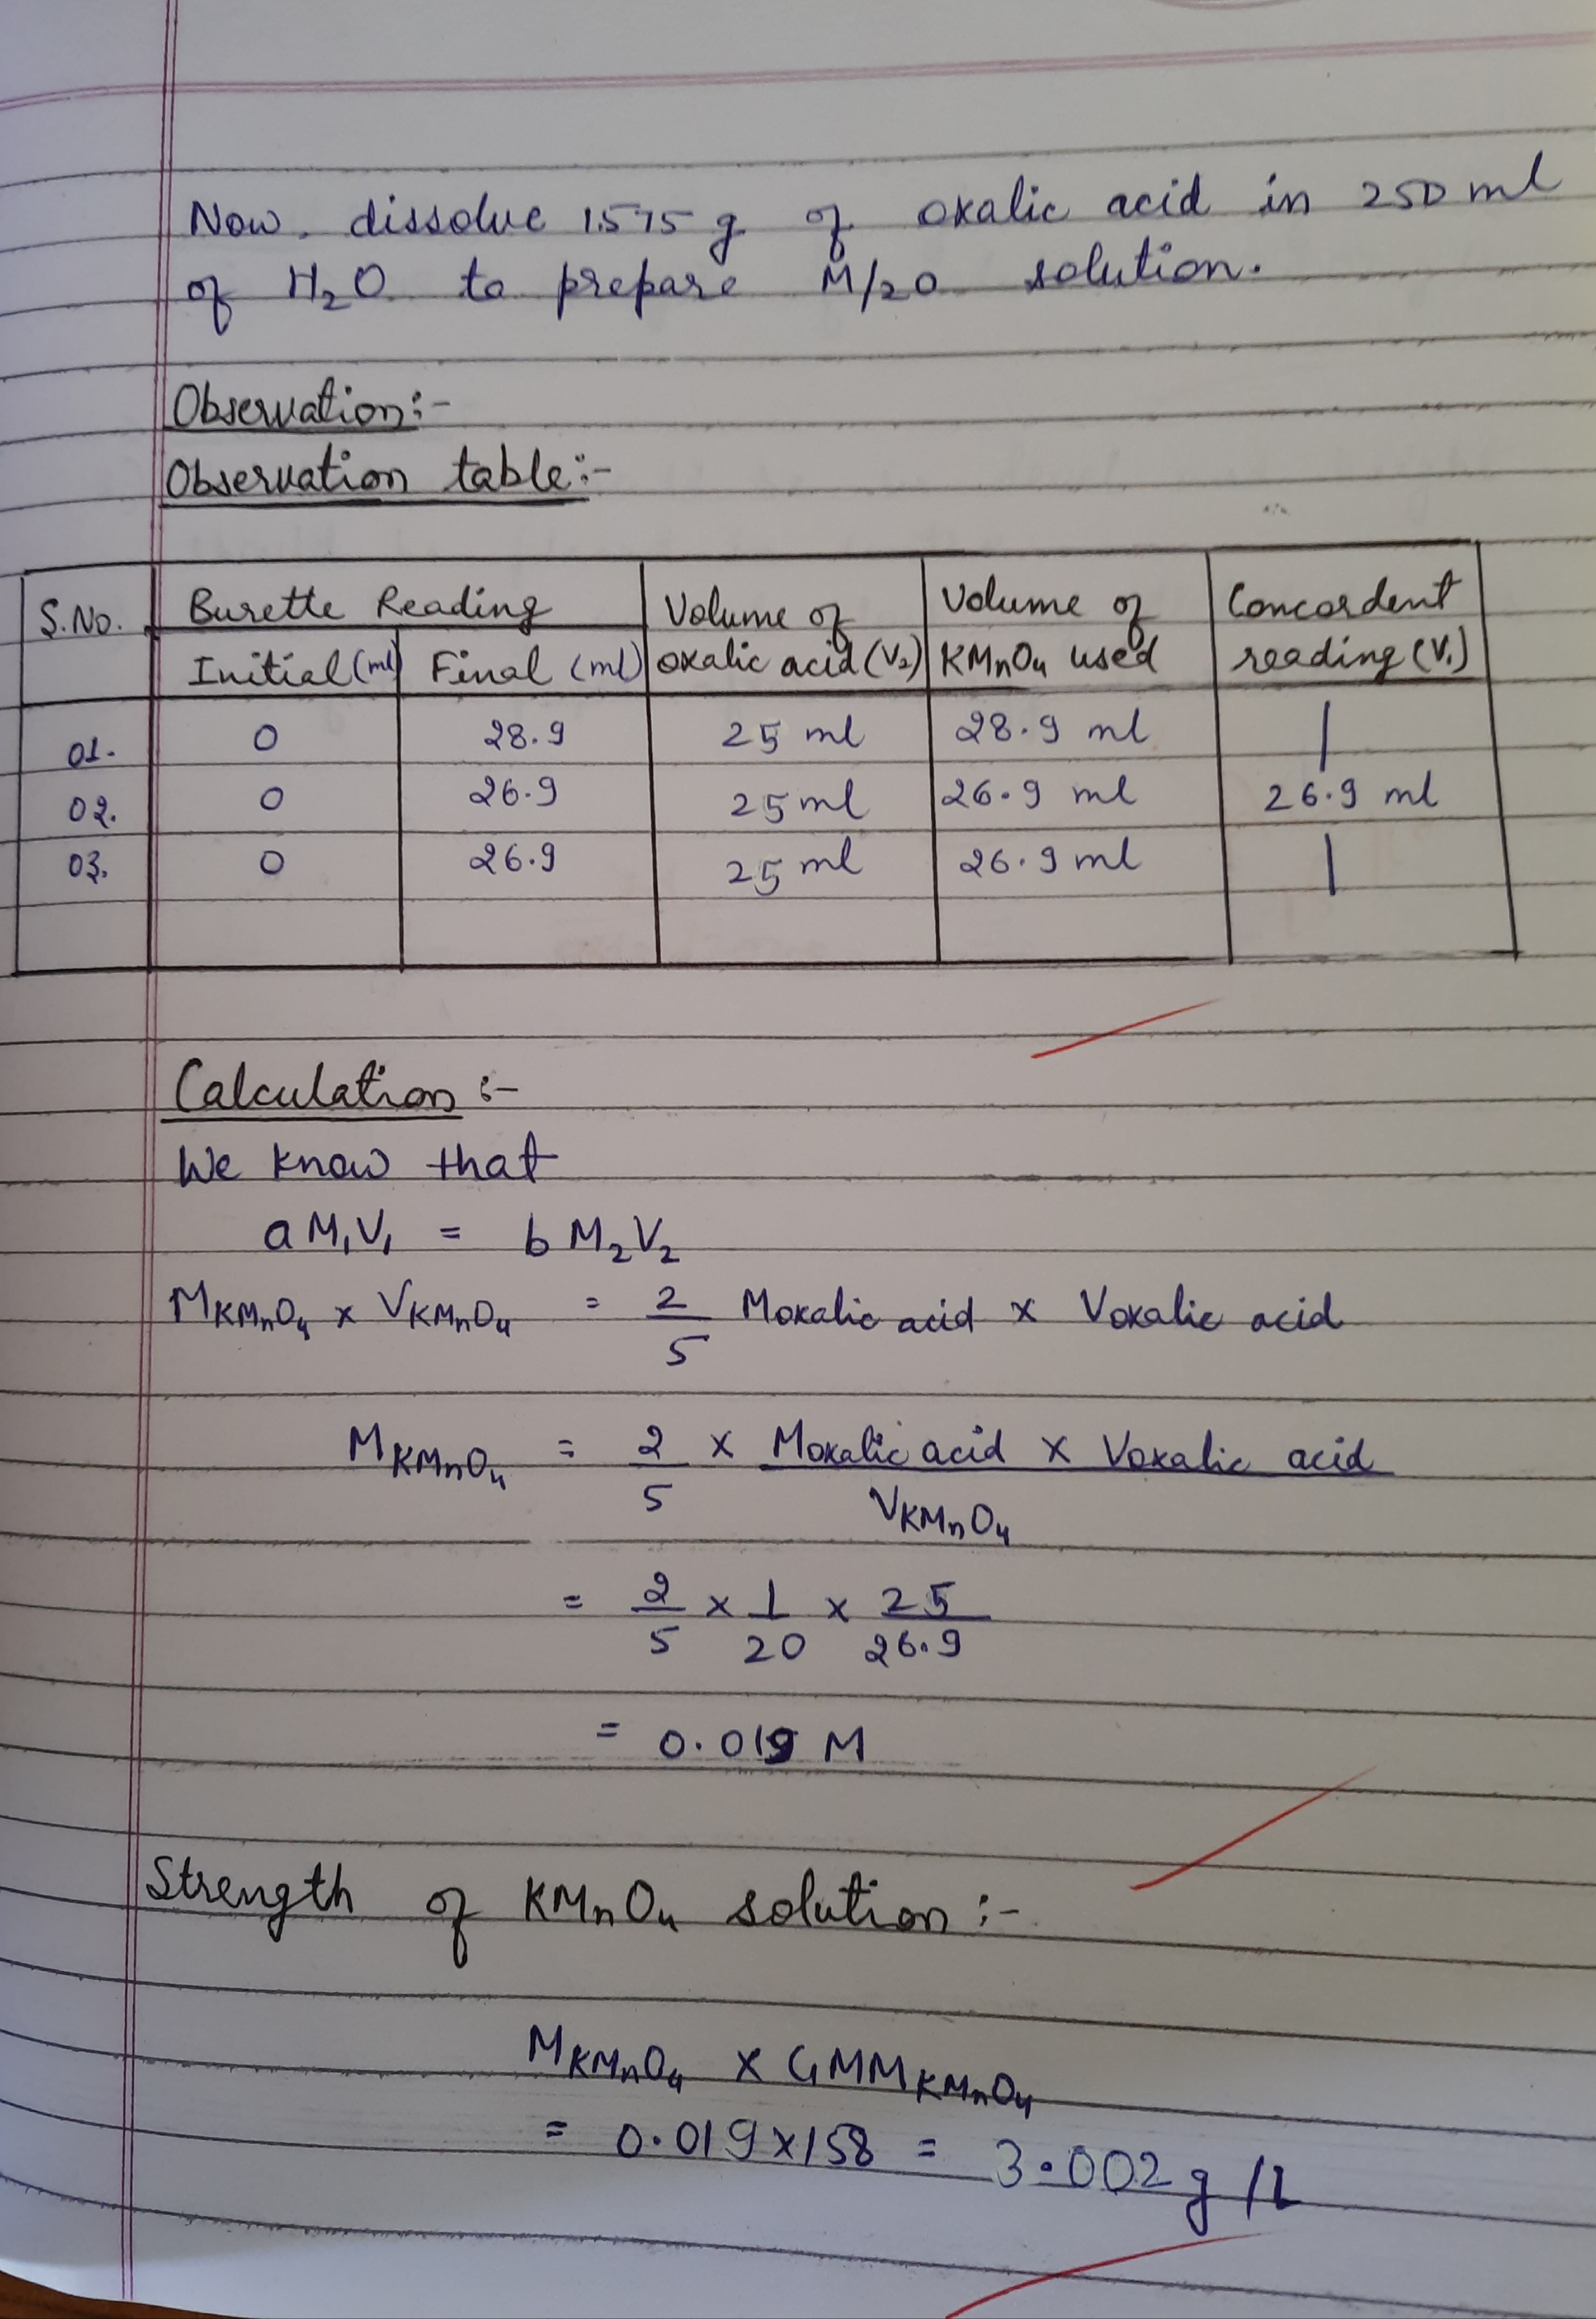 Now, dissolve 1.575 g of oxalic acid in 250 ml
of H₂O to prepare M/20 solution.
Observation:-
Observation table:-
S.No. Burette Reading Volume of oxalic acid (V₂) Volume of KMnO₄ used Concordent reading (V₁)
Initial (ml) Final (ml)
01. 0 28.9 25 ml 28.9 ml |
02. 0 26.9 25 ml 26.9 ml 26.9 ml
03. 0 26.9 25 ml 26.9 ml |
Calculation :-
We know that
a M₁V₁ = b M₂V₂
M KMnO₄ x V KMnO₄ = 2/5 Moxalic acid x Voxalic acid
M KMnO₄ = 2/5 x Moxalic acid x Voxalic acid / V KMnO₄
= 2/5 x 1/20 x 25/26.9
= 0.019 M
Strength of KMnO₄ solution :-
M KMnO₄ x GMM KMnO₄
= 0.019x158 = 3.002 g/L